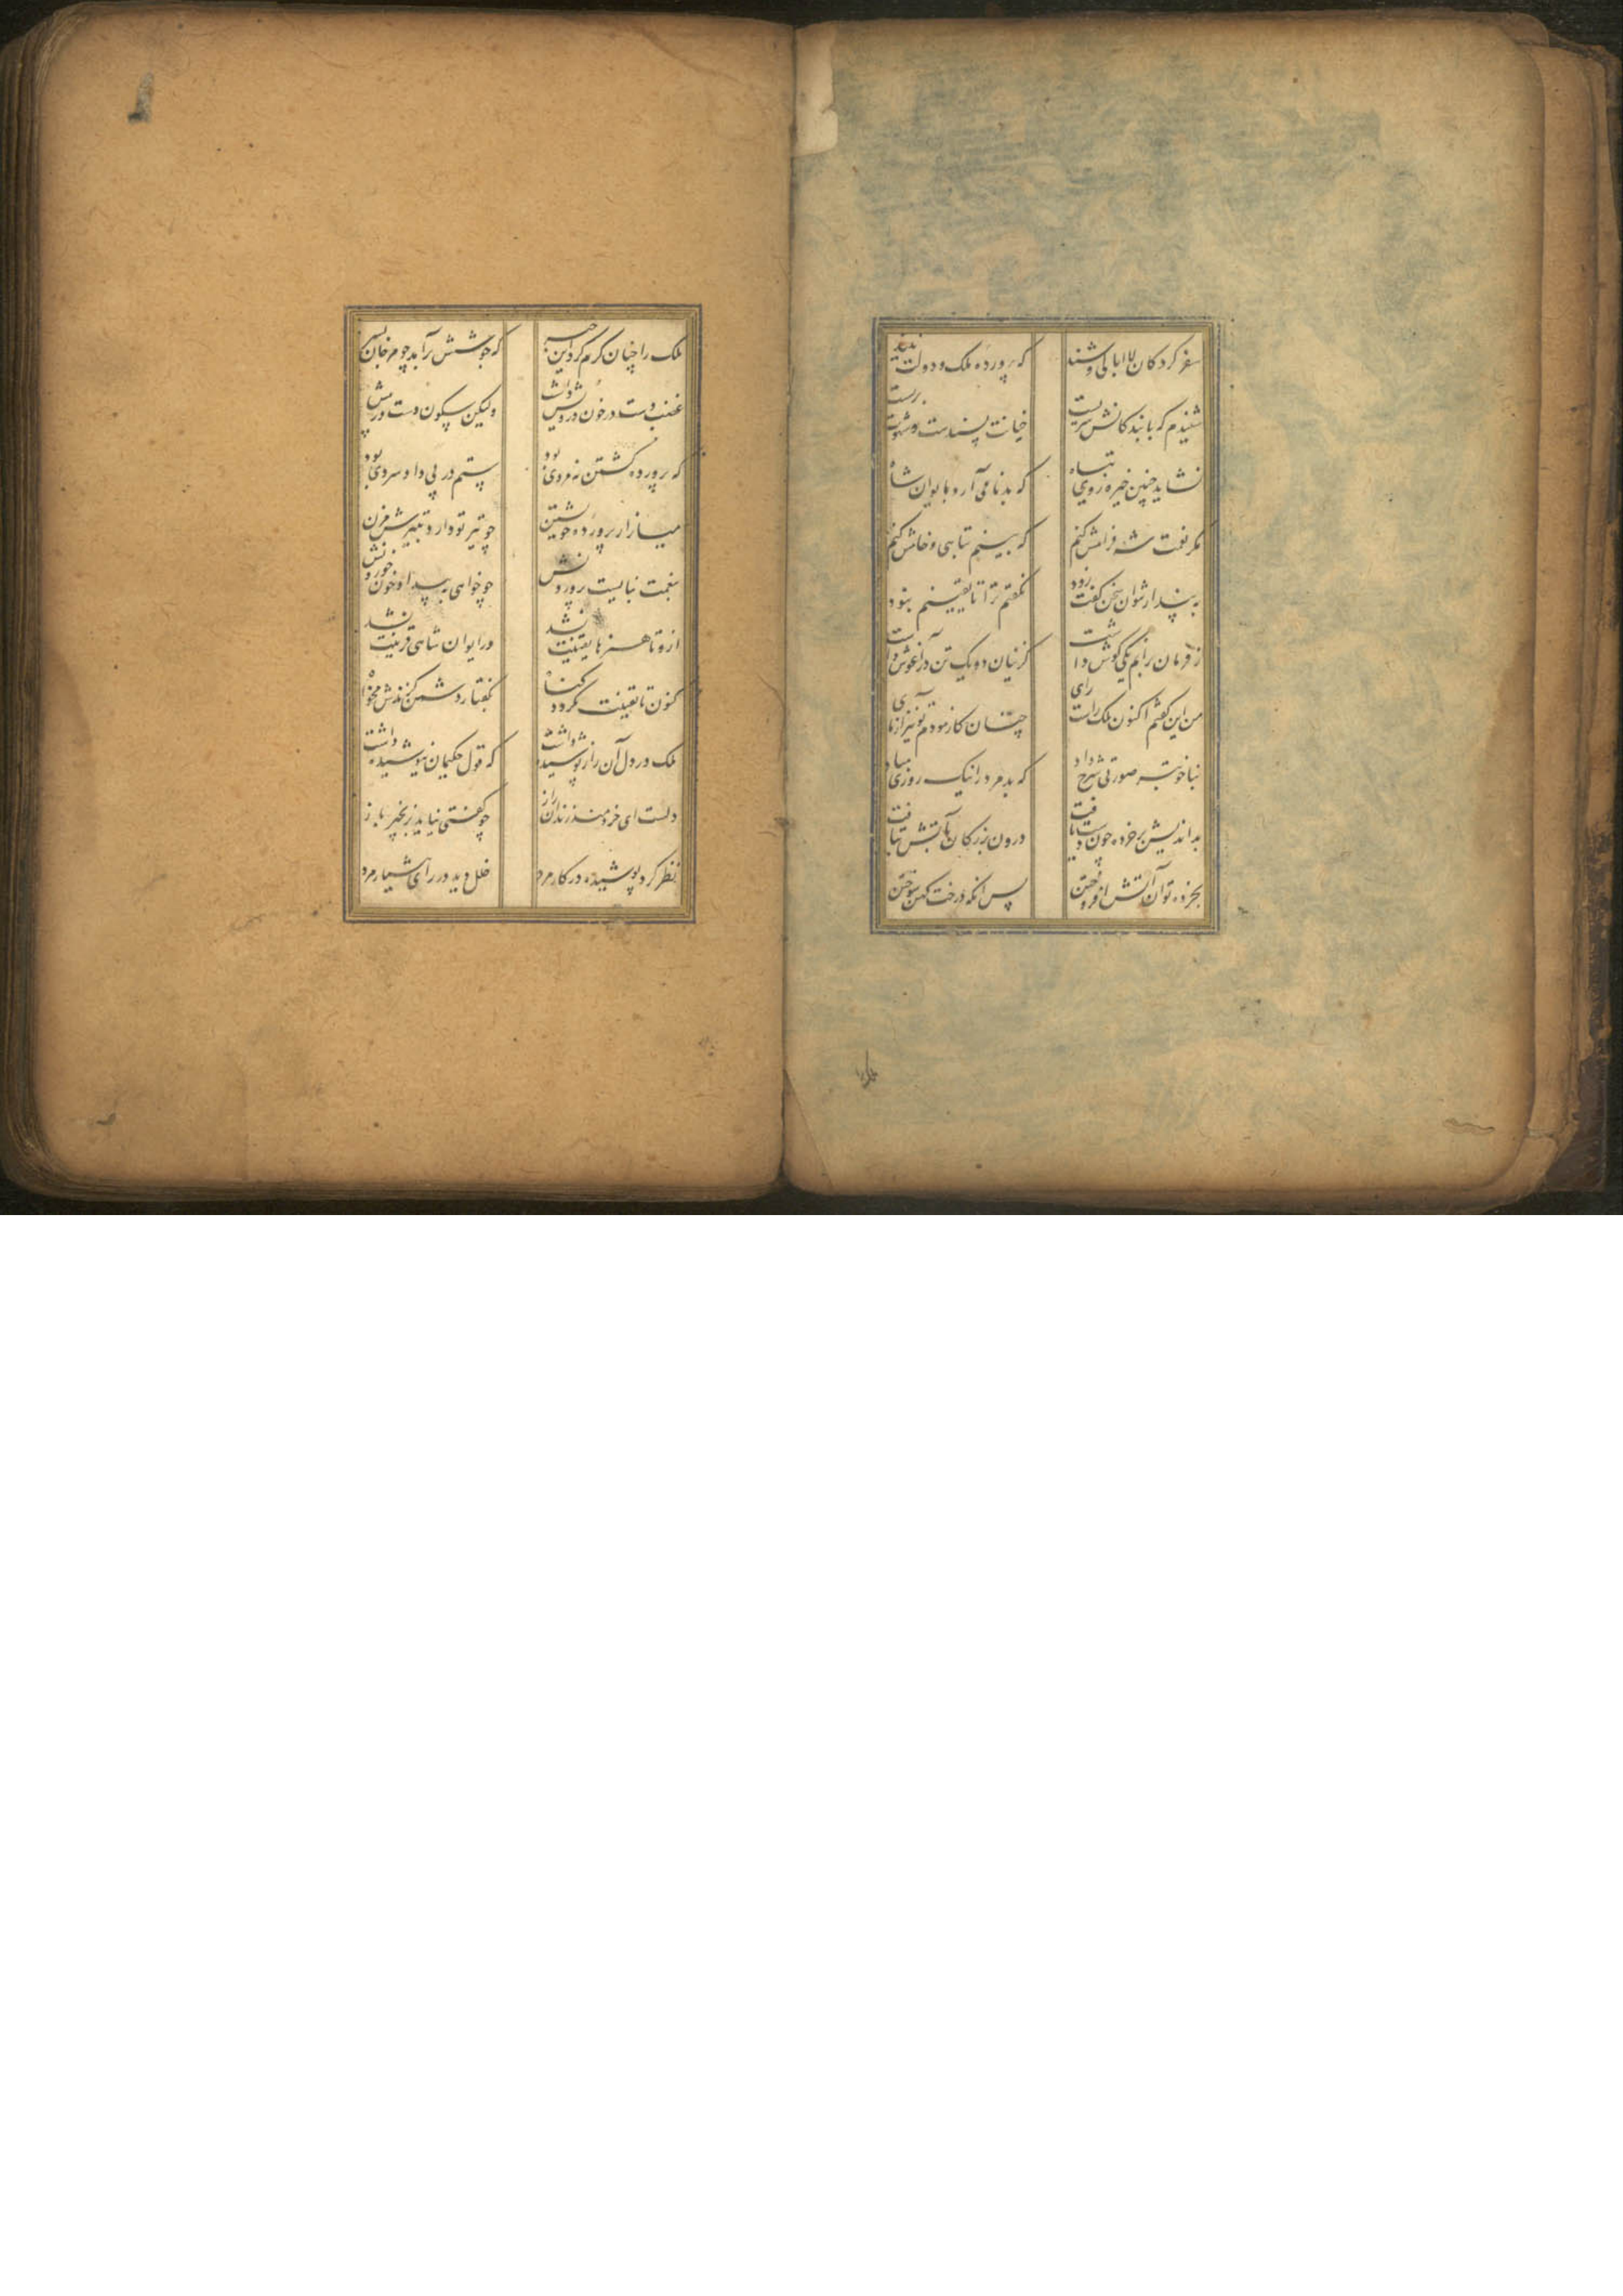 سفر کردکان لاابالی وشند که پرورده ملک و دولت نیند
شنیدم که با بندکانش سریست خیانت پسندست و شهوت پرست
نشاید چنین خیره روی تباه که بدنامی آرد بایوان شاه
مکر نعمت شه فرامش کنم که بینم تباهی و خامش کنم
به پندار نتوان سخن کفت زود نکفتم ترا تا یقینم نبود
ز فرمان برانم یکی کوش داشت کزینان دو یک تن در آغوش داشت
من این کفتم اکنون ملک راست رای چنان کازمودم تو نیز آزمای
بناخوبتر صورتی شرح داد که بد مرد را نیک روزی مباد
بداندیش بر خرده چون دست یافت درون بزرکان بآتش بتافت
بخرده توان آتش افروختن پس آنکه درخت کهن سوختن
ملک را چنان کرم کرد این خبر که جوشش برآمد چو مرجان بسر
غضب دست در خون درویش داشت ولیکن سکون دست در پیش
که پرورده کشتن نه مردی بود ستم در پی داد سردی بود
میازار پرورده خویشتن چو تیر تو دارد بتیرش مزن
بنعمت نبایست پروردنش چو خواهی به بیداد خون خوردنش
ازو تا هنرها یقینت نشد در ایوان شاهی قرینت نشد
کنون تا یقینت نکردد کناه بکفتار دشمن کزندش مخواه
ملک در دل آن راز پوشیده داشت که قول حکیمان نیوشیده داشت
دلست ای خردمند زندان راز چو کفتی نیاید بزنجیر باز
نظر کرد پوشیده در کار مرد خلل دید در رای هشیار مرد
ملک را